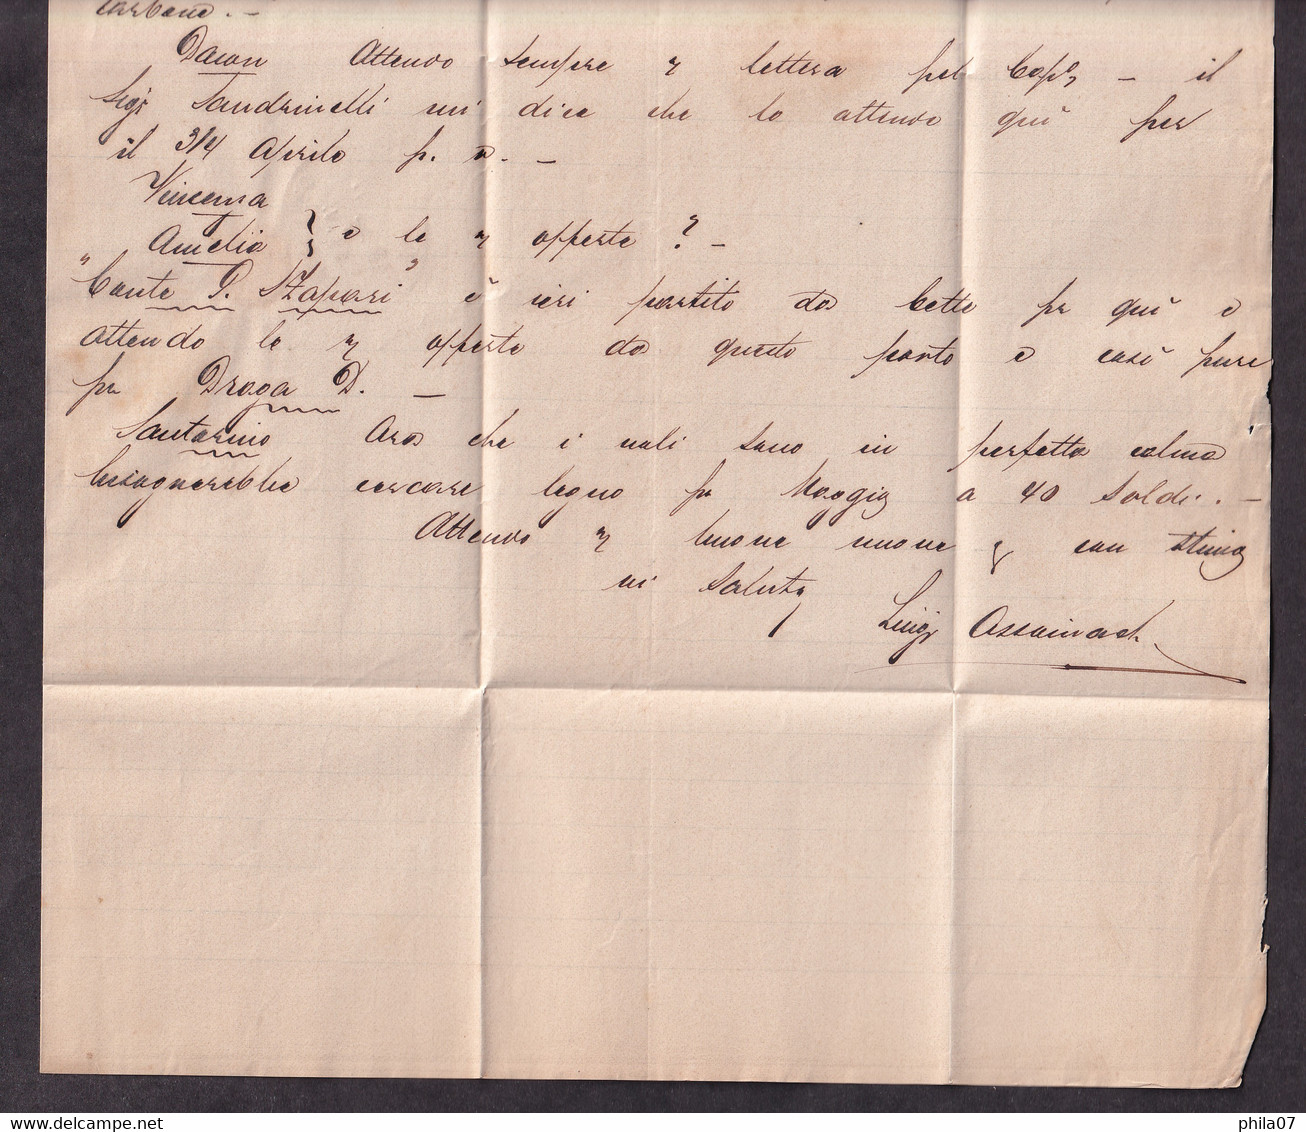 carbone. –
Dacon Attendo sempre lettera pel Cap° – il
Sigr Sandrinelli mi dice che lo attende quì per
il 3/4 Aprile p. v. –
Vincenza
Amelia } e le offerte? –
"Conte G. Szapari" è ieri partito da Cette pr quì e
attendo le offerte da questo porto e così pure
pr Draga D. –
Santarino Ora che i noli sono in perfetta calma
bisognerebbe cercare legno pr Maggio a 40 Soldi. –
Attendo buone nuove con stima
vi saluto
Luigi
www.delcampe.net
phila07